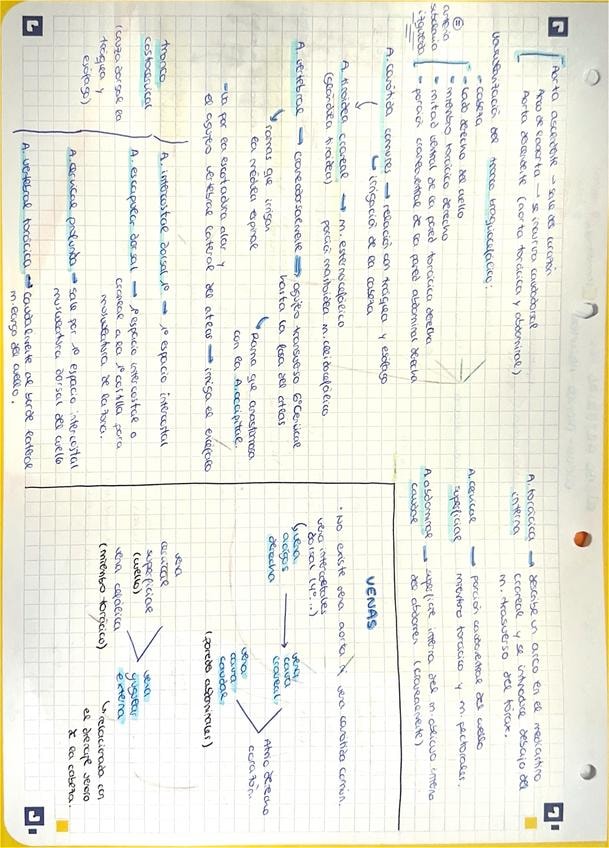 Aorta ascendente → sale del corazón
Arco de la aorta → se incurva caudodorsal
Aorta descendente (aorta torácica y abdominal)
Vascularización del tronco braquiocefálico:
• cabeza
• lado derecho del cuello
• miembro torácico derecho
• mitad ventral de la pared torácica derecha
• porción craneoventral de la pared abdominal derecha
arteria
subclavia
izquierda
A. carótida común → relación con tráquea y esófago
↳ irrigación de la cabeza
A. tiroidea craneal → m. esternocefálico
(glándula tiroidea) porción mastoidea m. cleidocefálico
A. vertebral → craneodorsalmente → agujero transverso 6ª cervical
hasta la fosa del atlas
ramas que irrigan
la médula espinal
Rama que anastomosa
con la A. occipital
→ Va por la escotadura alar y
el agujero vertebral lateral del atlas → irriga el encéfalo
Tronco
costocervical
(cruza dorsal la
tráquea y
esófago)
A. intercostal dorsal 1º → 1º espacio intercostal
A. escapular dorsal → 1º espacio intercostal o
craneal a la 1ª costilla para
musculatura de la zona.
A. cervical profunda → sale por 1º espacio intercostal
musculatura dorsal del cuello
A. vertebral torácica → caudalmente al borde lateral
m. largo del cuello.
A. torácica → describe un arco en el mediastino
interna craneal y se introduce debajo del
m. transverso del tórax.
A. cervical → porción caudoventral del cuello
superficial miembro torácico y m. pectorales.
A. abdominal → superficie interna del m. oblicuo interno
caudal del abdomen (cranealmente)
VENAS
* No existe vena aorta ni vena carótida común.
vena intercostales
dorsal (4º...)
vena
ácigos
derecha
vena
cava
craneal
vena
cava
caudal
(paredes abdominales)
Atrio derecho
corazón.
vena
cervical
superficial
(cuello)
vena cefálica
(miembro torácico)
vena
yugular
externa
↳ relacionada con
el drenaje venoso
de la cabeza.